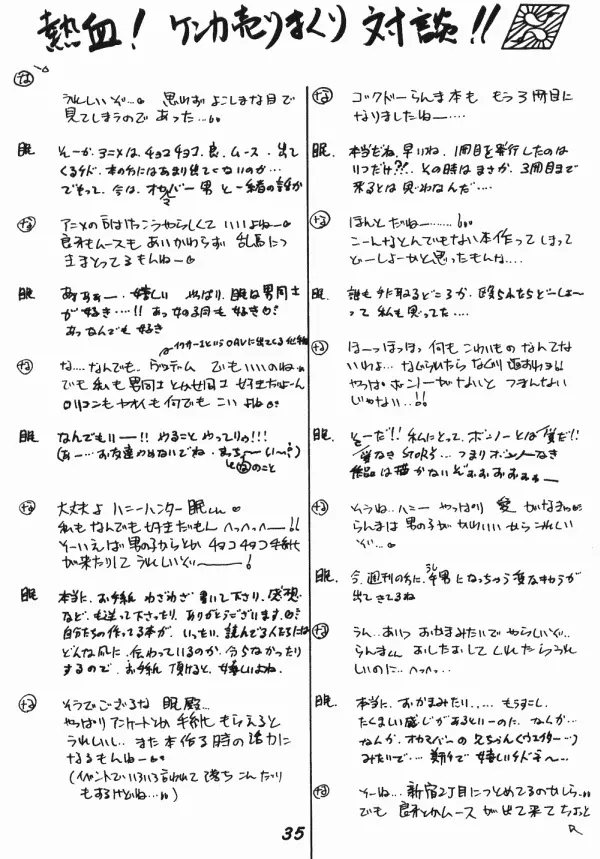 熱血! ケンカ売りまくり 対談!!
な ゴクドーらんま本も もう3冊目に
なりましたねー‥‥
眠. 本当だね, 早いね. 1冊目を発行したのは
いつだっけ?!. その時は まさか. 3冊目まで
来るとは 思わなんだ‥‥
な ほんとだねー‥‥‥
こーんなとんでもない本作ってしまって
どーしよーかと思ったもんな‥‥
眠. 誰も 手取るどころか. 殴られたらどーしょ〜
って 私も思ってた‥‥
な ほーっほっほっ 何も こわいもの なんてな
いわよ… なぐられたら なぐり返すわよ!!
やっぱ ボンノーがないと つまんない
じゃない‥!!
眠. そーだ!! 私にとって. ボンノーとは 愛だ!!
愛なき STORY… つまりボンノーなき
作品は 描かないぞぉぉぉぉぉぉー
な そうね.. ハニー やっぱり 愛 がなきゃ
らんまは 男の子が かわいいから うれしい
ぞ…
眠. 今. 週刊の方に. 牛男になっちゃう 変なキャラが
出てきてるね
な うん‥あいつ おかまみたいで やらしいぞ…
らんまくん おしたおして くれたらうれ
しいのに‥ へへっ‥
眠. 本当に. おかまみたい‥‥. もうすこし.
たくましい感じがあるといーのに. なんか…
なんか. オカマバーの 兄ちゃん(ウエイター‥)
みたいで‥‥ 期待で 嬉しいケド
な そーね… 新宿2丁目につとめてるのかしら…
でも 良牙とかムース が出て来て ちょっと
な うれしいぞ… 思わず よこしまな目で
見てしまうので あった‥
眠 そーか. アニメは. チョコチョコ. 良. ムース. 出て
くるケド. 本の方には あまり出てこないのか…
でもって. 今は. オカマバー 男 と一緒の話か
な アニメの方は けっこう やらしくて いいよねー
良牙もムースも あいかわらず 乱馬につ
きまとってるもんねー
眠 あぁぁー‥嬉しい やっぱり. 眠は男同士
が好き‥‥!! あっ 女の子同士も 好き
あっ なんでも 好き
な な‥‥なんでも..
でも 私も 男同士 とか女同士 好きだよーん
ロリコンも ヤオイも 何でも こい よね
眠 なんでもいー!! やること やってりゃ!!!
な 大丈夫よ ハニーハンター 眠くん
私も なんでも 好きだもん へっへっへー!!
そーいえば 男の子からとか チョコチョコ 手紙
が来たりして うれしいぞー!
眠 本当に. お手紙 わざわざ 書いて下さり. 感想
なども送って下さったり. ありがとうございます.
自分たちの作ってる本が. いったい. 読んでる人たちには
どんな風に. 伝わっているのか. 分らなかったり
するので. お手紙 頂けると. 嬉しいよね.
な そうでござるな 眠殿…
やっぱり アンケートとか 手紙とか もらえると
うれしいし. また 本作る時の 活力に
なるもんねー
(イベントでいろいろ言われて 落ちこんだり
もするけどね…)
35